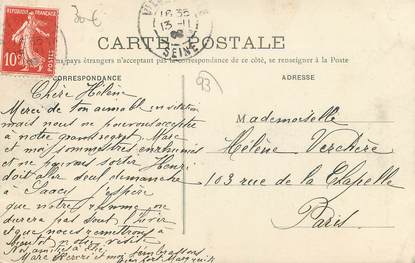 30€
RÉPUBLIQUE FRANÇAISE
10
POSTES
16 35
13 -11
08
SEINE
CARTE POSTALE
pays étrangers n'acceptant pas la correspondance de ce côté, se renseigner à la Poste
CORRESPONDANCE
ADRESSE
93
Chère Hélène
Merci de ton aimable invitation
mais nous ne pouvons accepter
à notre grand regret. Marc
et moi sommes très enrhumés
et ne pouvons sortir. Henri
doit aller seul dimanche
à
j'espère
que notre rhume ne
durera pas tout l'hiver
et que nous remettrons à
bientôt notre visite
Nos amitiés à
Marc Henri et moi t'embrassons
bien fort Marguerite
Mademoiselle
Hélène Verchère
103 rue de la Chapelle
Paris